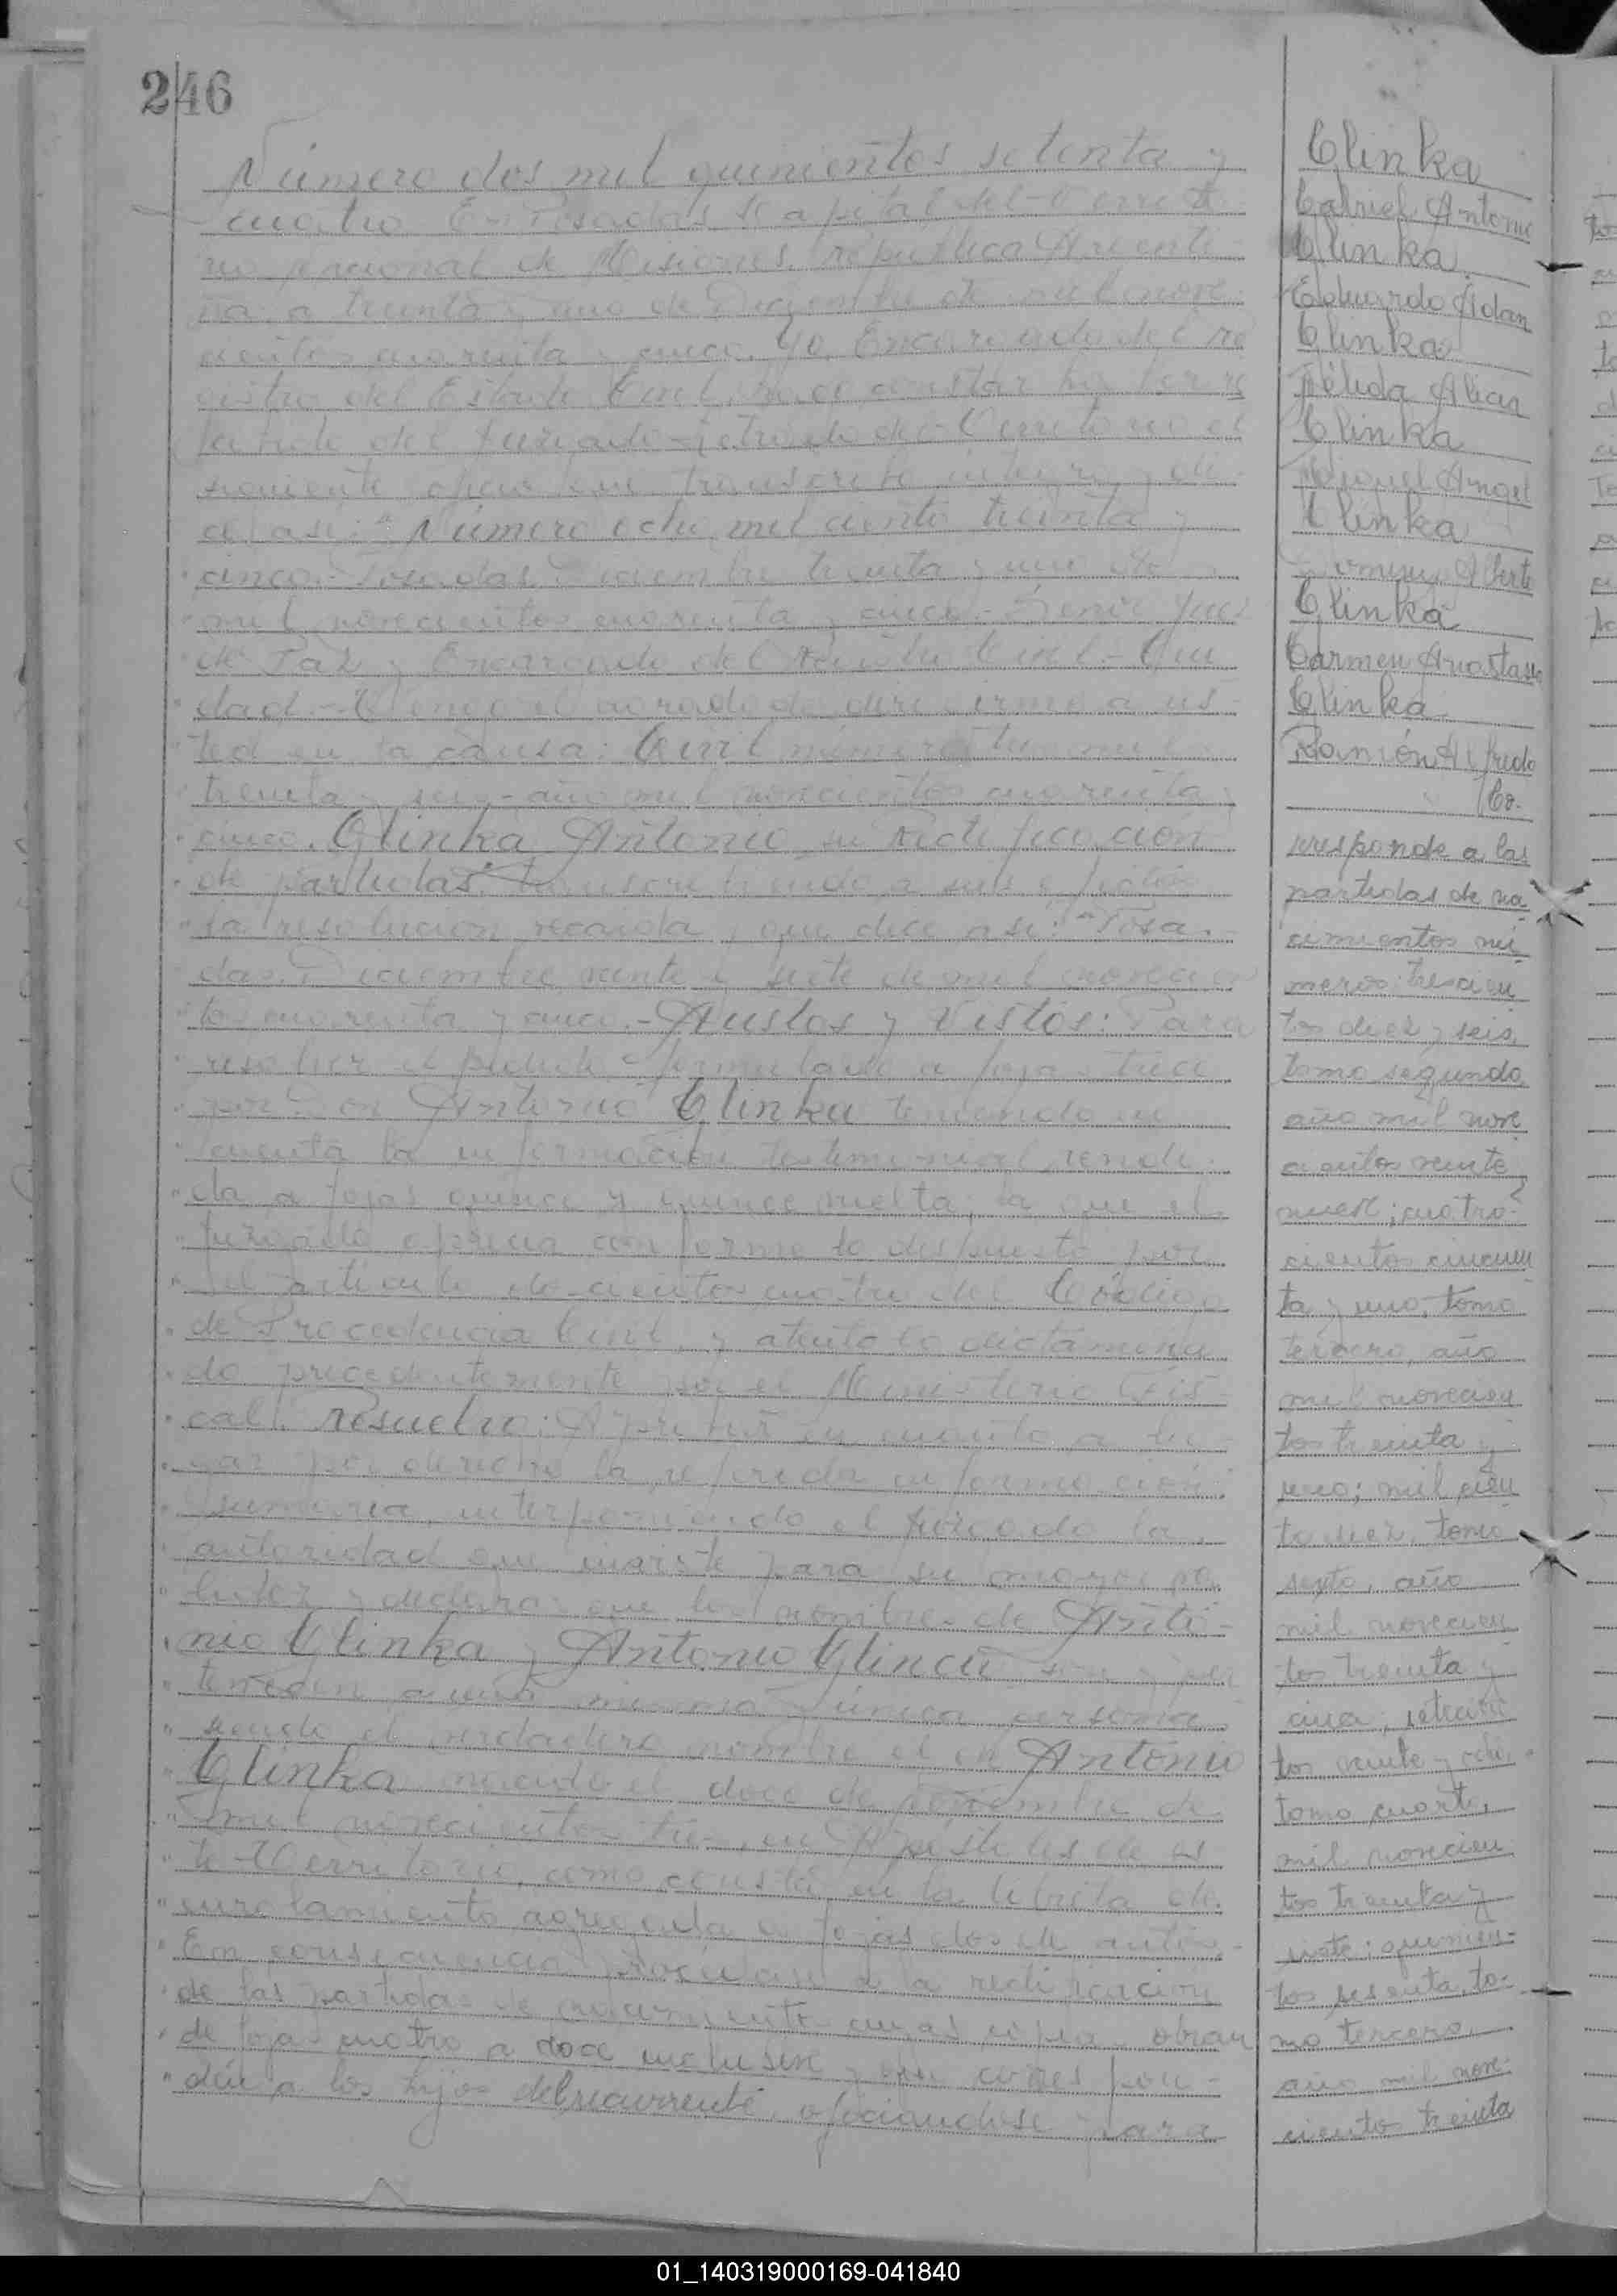 246
Número dos mil quinientos setenta y
cuatro En Posadas Capital del Territo-
rio Nacional de Misiones, República Argenti-
na, a treinta y uno de Diciembre de mil nove-
cientos cuarenta y cinco. Yo, Encargado del Re
gistro del Estado Civil, hago constar
del Juzgado Letrado del Territorio el
siguiente oficio que transcribo íntegro y di-
ce así: "Número ocho mil ciento treinta y
cinco.- Posadas, Diciembre treinta y uno de
mil novecientos cuarenta y cinco.- Señor Juez
de Paz y Encargado del Registro Civil.- Ciu
dad.- Tengo el agrado de dirigirme a us-
ted en la causa: Civil número tres mil
treinta y seis- año mil novecientos cuarenta y
cinco. Glinka Antonio su Rectificación
de partidas" transcribiendo a sus efectos
la resolución recaída, que dice así: "Posa-
das, Diciembre veinte y siete de mil novecien
tos cuarenta y cinco.- Autos y Vistos: Para
resolver el pedido formulado a fojas trece
por Don Antonio Glinka teniendo en
cuenta la información testimonial rendi-
da a fojas quince y quince vuelta, la que el
juzgado aprecia conforme lo dispuesto por
el artículo doscientos cuatro del Código
de Procedencia Civil, y atento lo dictamina
do precedentemente por el Ministerio Fis-
cal. Resuelvo: Aprobar en cuanto a lu-
gar por derecho la referida información
sumaria, interponiendo el juzgado la
autoridad que inviste para su mayor va
lidez y declarar que los nombres de Anto-
nio Glinka y Antonio Glincu son y per
tenecen a una misma y única persona
siendo el verdadero nombre el de Antonio
Glinka nacido el doce de de
mil novecientos tres, en Apóstoles de es
te Territorio, como consta en la libreta de
enrolamiento agregada a fojas dos de autos.-
En consecuencia procédase a la rectificación
de las partidas de nacimiento cuyas copias obran
de fojas cuatro a doce inclusive y que corres pon-
den a los hijos del recurrente, oficiandose para
Glinka
Gabriel Antonio
Glinka
Eduardo Adan
Glinka
Nélida
Glinka
Miguel Angel
Glinka
Alberto
Glinka
Carmen Anastasia
Glinka
Ramón Alfredo
Co-
rresponde a las
partidas de na
cimientos nú
meros: trescien
tos diez y seis,
tomo segundo,
año mil nove
cientos veinte
nueve; cuatro-
cientos cincuen
ta y uno, tomo
tercero, año
mil novecien
tos treinta y
uno; mil cien
to diez, tomo
sexto, año
mil novecien
tos treinta y
cinco, setecien
tos veinte y ocho,
tomo cuarto,
mil novecien
tos treinta y
siete; quinien-
tos sesenta, to-
mo tercero,
año mil nove-
ciento treinta
01_140319000169-041840